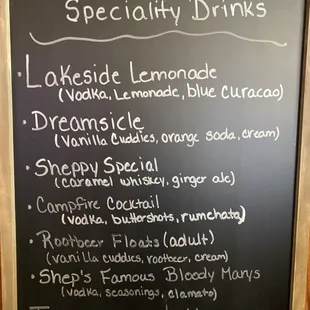 Speciality Drinks
· Lakeside Lemonade
(Vodka, Lemonade, blue curacao)
· Dreamsicle
(Vanilla Cuddies, orange soda, cream)
· Sheppy Special
(caramel whiskey, ginger ale)
· Campfire Cocktail
(vodka, buttershots, rumchata)
· Rootbeer Floats (adult)
(vanilla cuddies, rootbeer, cream)
· Shep's Famous Bloody Marys
(vodka, seasonings, clamato)